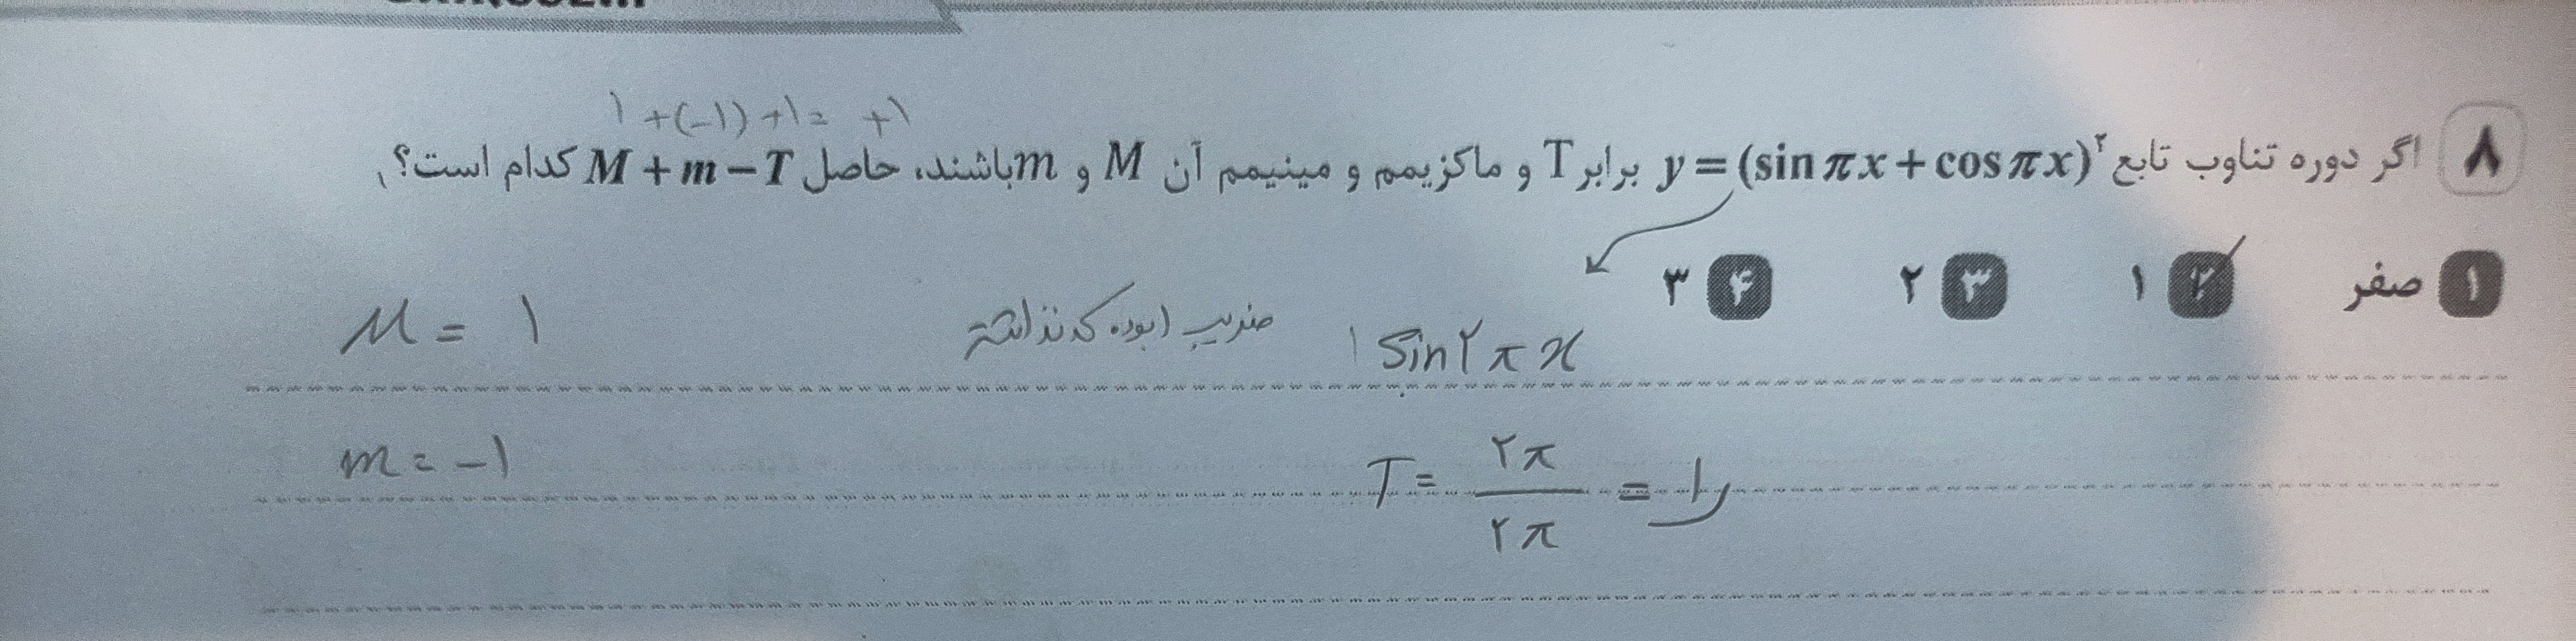 ۱ + (-۱) + ۱ = +۱
۸ اگر دوره تناوب تابع y = (sin πx + cos πx)² برابر T و ماکزیمم و مینیمم آن M و m باشند، حاصل M + m - T کدام است؟
۱ صفر ۲ ۱ ۳ ۲ ۴ ۳
۱ sin ۲πx ضریب ۱ بوده که نذاشته M = ۱
T = ۲π/۲π = ۱ m = -۱